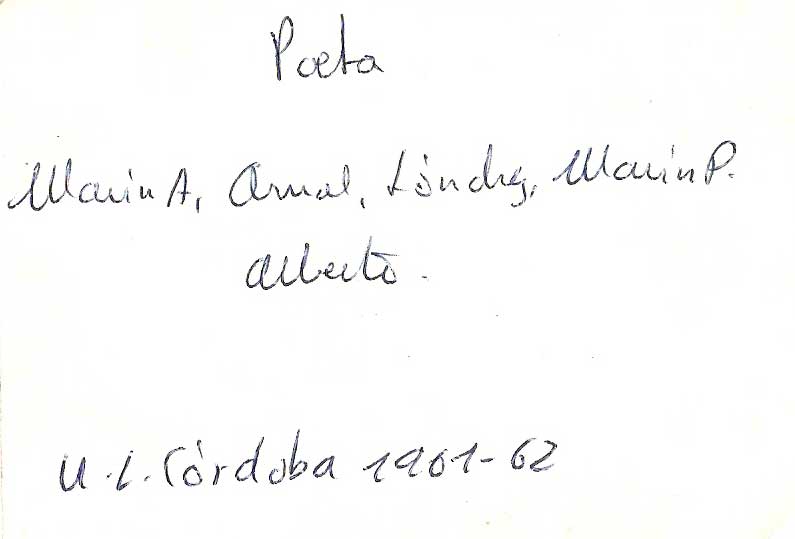 Poeta
Marin A, Arnal, Sánchez, Marin P.
Alberto.
U.L. Córdoba 1961-62